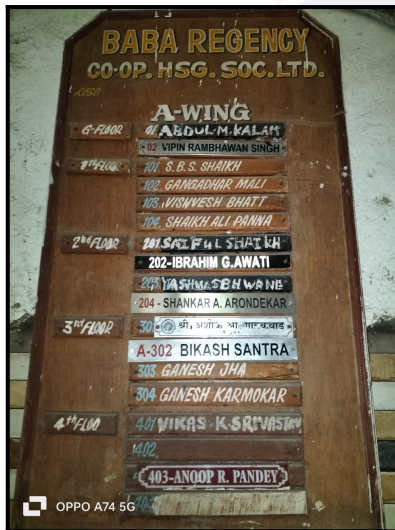 BABA REGENCY
CO-OP. HSG. SOC. LTD.
A-WING
G-FLOOR 01 ABDUL.M.KALAM
02 VIPIN RAMBHAWAN SINGH
1st FLOOR 101. S.B.S. SHAIKH
102. GANGADHAR MALI
103. VISHVESH BHATT
104. SHAIKH ALI PANNA
2nd FLOOR 201 SAIFUL SHAIKH
202-IBRAHIM G.AWATI
203
204 - SHANKAR A. ARONDEKAR
3rd FLOOR 301 श्री. अशोक
A-302 BIKASH SANTRA
303 GANESH JHA
304 GANESH KARMOKAR
4th FLOO 401 VIKAS K SRIVASTAV
402.
403-ANOOP R. PANDEY
OPPO A74 5G